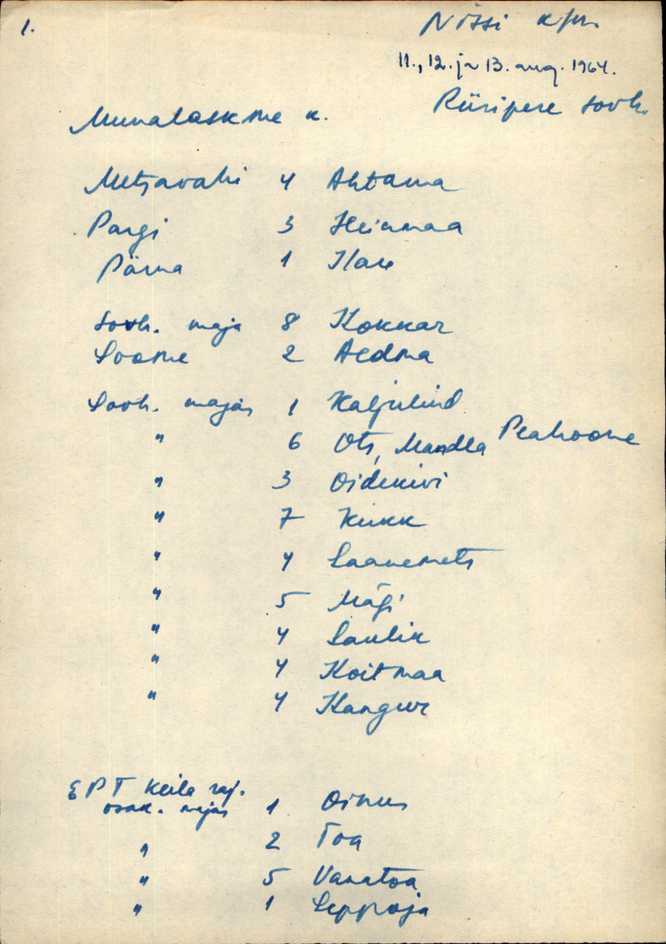 1.
Nissi
11., 12. ja 13. aug. 1964.
Riisipere sovh.
Munalaskme k.
Metsavahi 4 Ahtama
Pargi 3 Heinmaa
Pärna 1 Ilau
Sovh. maja 8 Kokkar
Soome 2 Aedma
Sovh. majas 1 Kaljulind
" 6 Ots, Mandla Peahoone
" 3 Oidekivi
" 7 Kukk
" 4 Saaremets
" 5 Mägi
" 4 Saulin
" 4 Koitmaa
" 4 Kangur
EPT Keila raj.
osak. majas 1 Oinus
" 2 Toa
" 5 Vanatoa
" 1 Seppoja